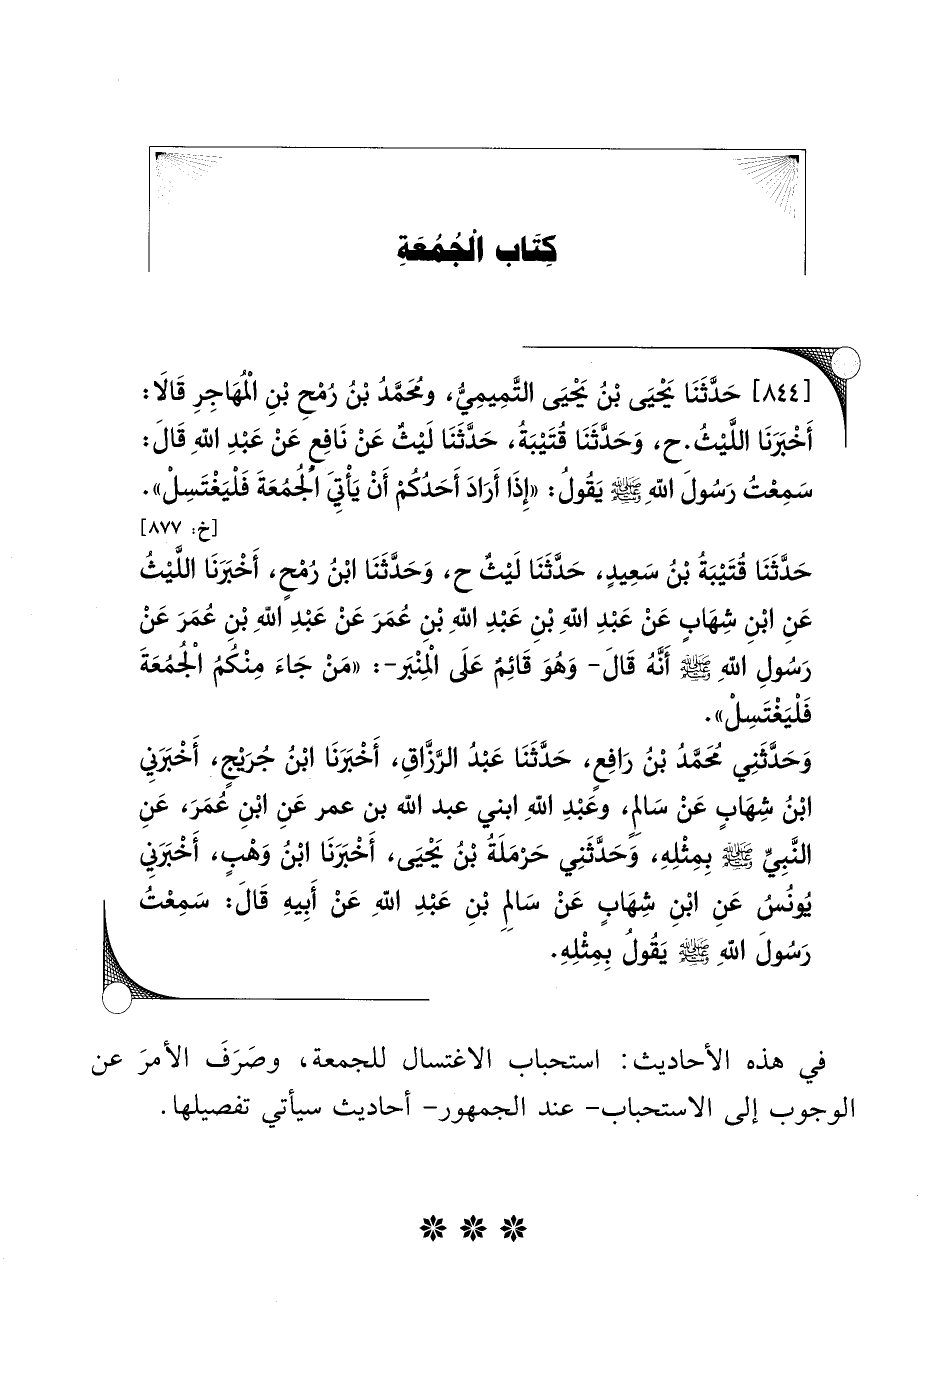 كِتَاب الْجُمُعَةِ
[٨٤٤] حَدَّثَنَا يَحْيَى بْنُ يَحْيَى التَّمِيمِيُّ، ومُحَمَّدُ بْنُ رُمْحِ بْنِ الْمُهَاجِرِ قَالَا:
أَخْبَرَنَا اللَّيْثُ.ح، وَحَدَّثَنَا قُتَيْبَةُ، حَدَّثَنَا لَيْثٌ عَنْ نَافِعٍ عَنْ عَبْدِ اللهِ قَالَ:
سَمِعْتُ رَسُولَ اللهِ ﷺ يَقُولُ: «إِذَا أَرَادَ أَحَدُكُمْ أَنْ يَأْتِيَ الْجُمُعَةَ فَلْيَغْتَسِلْ».
[خ: ٨٧٧]
حَدَّثَنَا قُتَيْبَةُ بْنُ سَعِيدٍ، حَدَّثَنَا لَيْثٌ ح، وَحَدَّثَنَا ابْنُ رُمْحٍ، أَخْبَرَنَا اللَّيْثُ
عَنِ ابْنِ شِهَابٍ عَنْ عَبْدِ اللهِ بْنِ عَبْدِ اللهِ بْنِ عُمَرَ عَنْ عَبْدِ اللهِ بْنِ عُمَرَ عَنْ
رَسُولِ اللهِ ﷺ أَنَّهُ قَالَ- وَهُوَ قَائِمٌ عَلَى الْمِنْبَرِ-: «مَنْ جَاءَ مِنْكُمُ الْجُمُعَةَ
فَلْيَغْتَسِلْ».
وَحَدَّثَنِي مُحَمَّدُ بْنُ رَافِعٍ، حَدَّثَنَا عَبْدُ الرَّزَّاقِ، أَخْبَرَنَا ابْنُ جُرَيْجٍ، أَخْبَرَنِي
ابْنُ شِهَابٍ عَنْ سَالِمٍ، وعَبْدِ اللهِ ابني عبد الله بن عمر عَنِ ابْنِ عُمَرَ، عَنِ
النَّبِيِّ ﷺ بِمِثْلِهِ، وَحَدَّثَنِي حَرْمَلَةُ بْنُ يَحْيَى، أَخْبَرَنَا ابْنُ وَهْبٍ، أَخْبَرَنِي
يُونُسُ عَنِ ابْنِ شِهَابٍ عَنْ سَالِمِ بْنِ عَبْدِ اللهِ عَنْ أَبِيهِ قَالَ: سَمِعْتُ
رَسُولَ اللهِ ﷺ يَقُولُ بِمِثْلِهِ.
في هذه الأحاديث: استحباب الاغتسال للجمعة، وصَرَفَ الأمرَ عن
الوجوب إلى الاستحباب- عند الجمهور- أحاديث سيأتي تفصيلها.